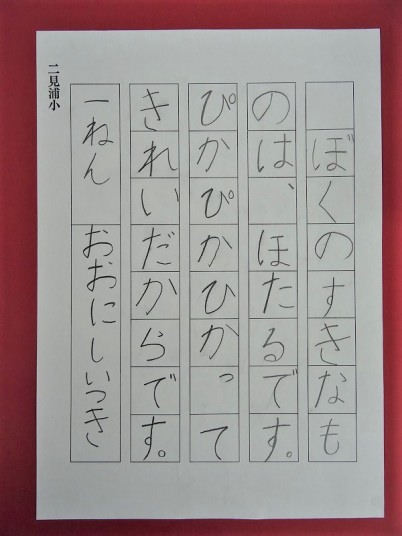 ぼくのすきなも
のは、ほたるです。
ぴかぴかひかって
きれいだからです。
一ねん おおにしいつき
二見浦小